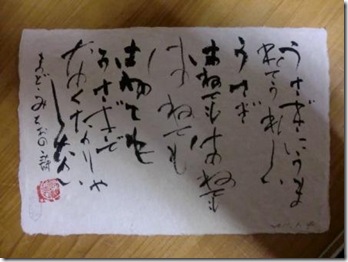 うさぎにうま
れてうれしい
うさぎ
はねてもはねても
はねても
はねても
うさぎで
なくなりゃ
しない
まど・みちおの詩